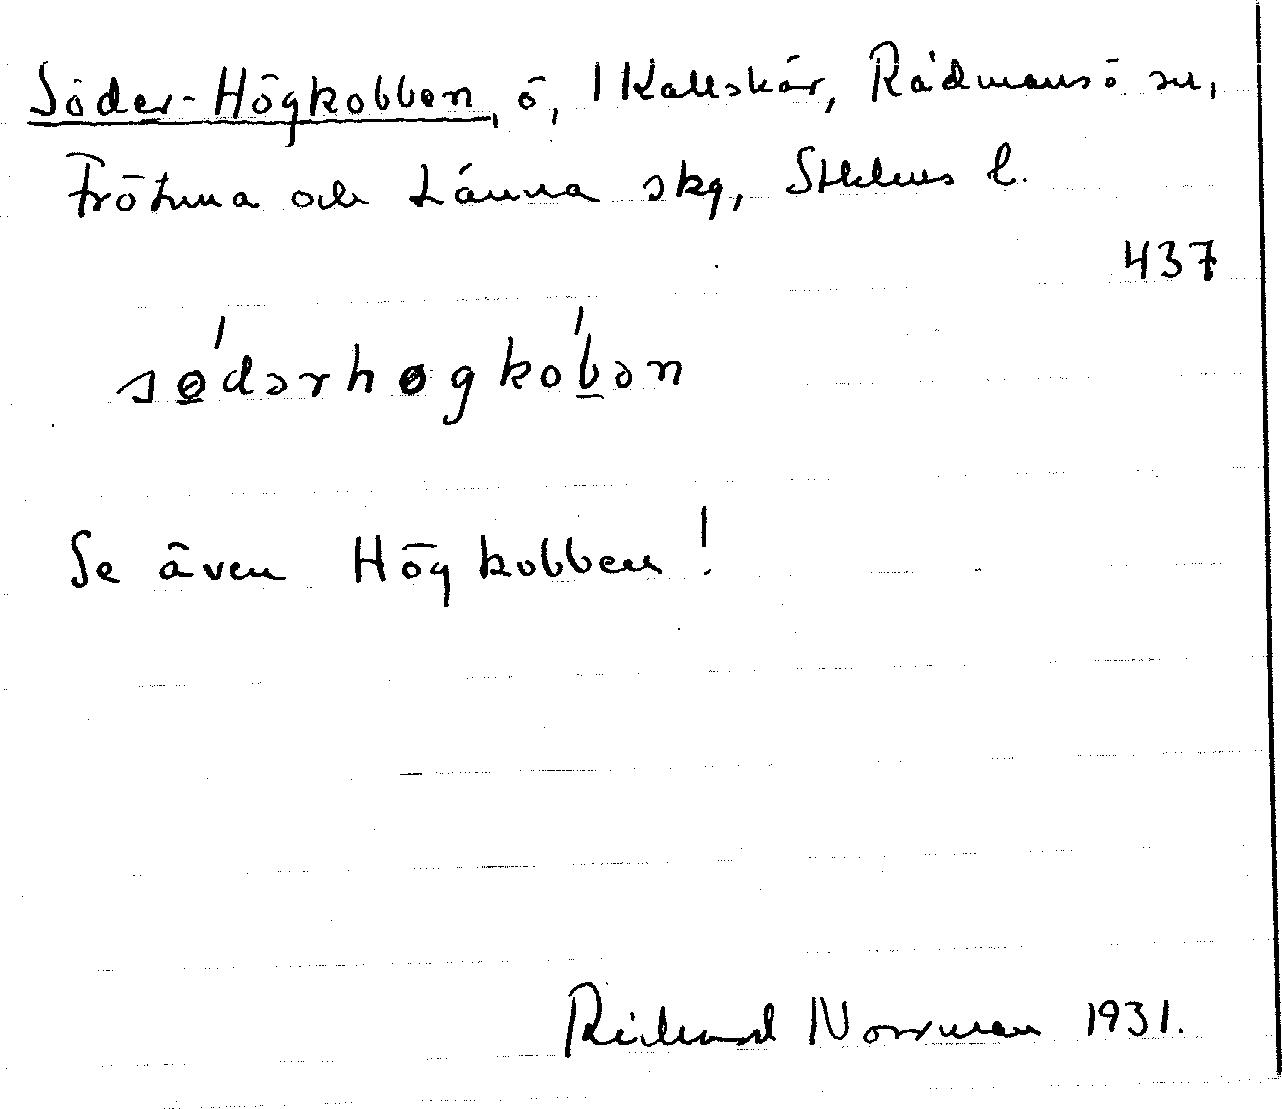 Söder-Högkobben, ö, 1 Kallskär, Rådmansö sn,
Frötuna och Länna skg, Sthlms l.
437
sødərhøgkobən
Se även Högkobben!
Richard Norrman 1931.